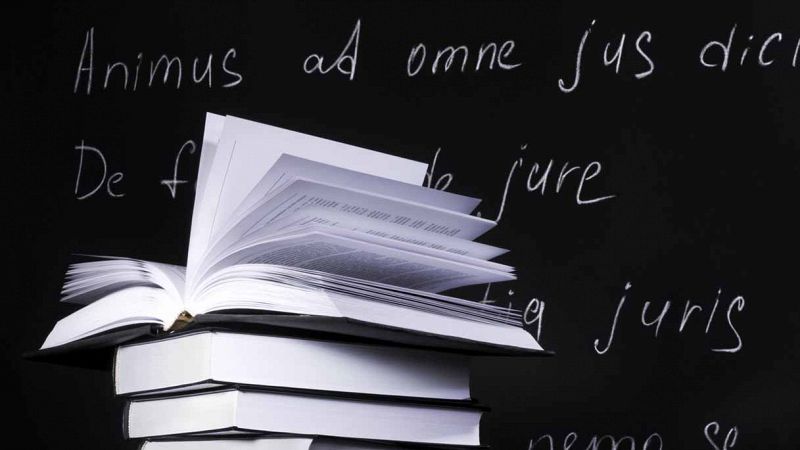 Animus ad omne jus dici
De f de jure
tia juris
nemo se